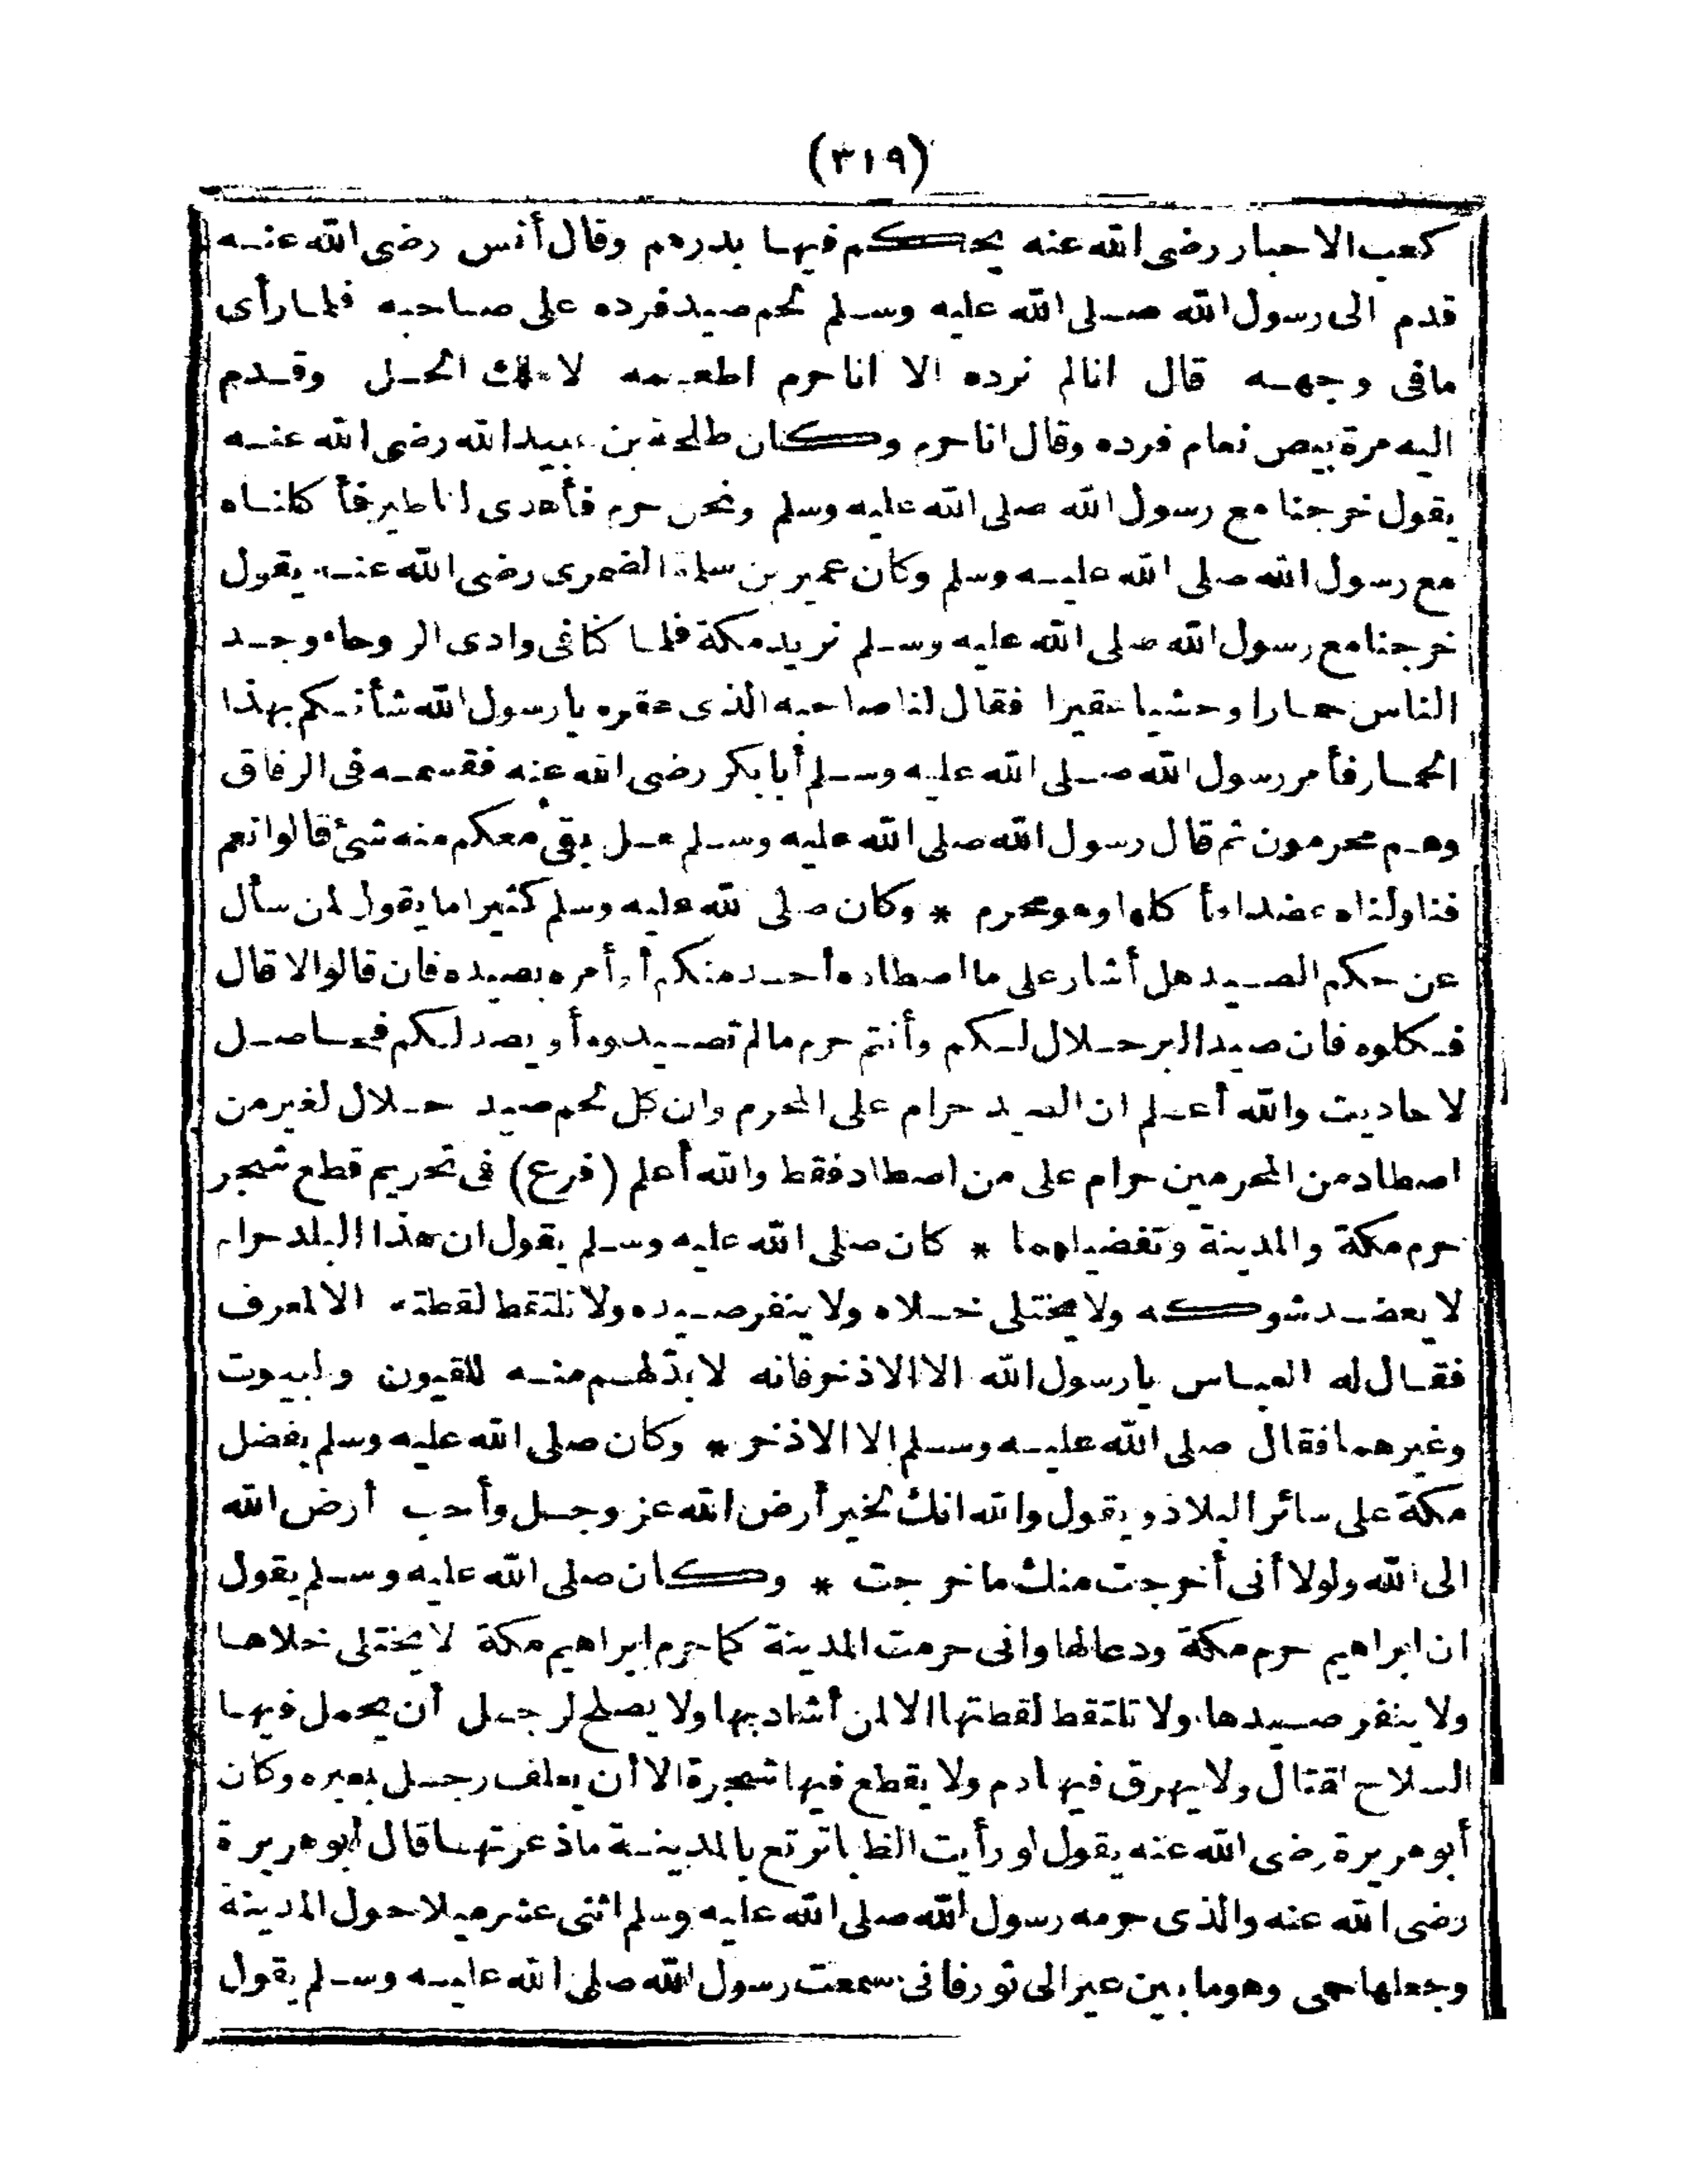 (٣١٩)
كعب الاحبار رضى الله عنه يحكم فيها بدرهم وقال أنس رضى الله عنه
قدم الى رسول الله صلى الله عليه وسلم لحم صيد فرده على صاحبه فلما رأى
مافى وجهه قال انالم نرده الا اناحرم اطعمه لاهلك الحل وقدم
اليه مرة بيض نعام فرده وقال اناحرم وكان طلحة بن عبيد الله رضى الله عنه
يقول خرجنا مع رسول الله صلى الله عليه وسلم ونحن حرم فأهدى لنا طير فأكلناه
مع رسول الله صلى الله عليه وسلم وكان عمير بن سلمة الضمرى رضى الله عنه يقول
خرجنا مع رسول الله صلى الله عليه وسلم نريد مكة فلما كنا فى وادى الروحاء وجد
الناس حمارا وحشيا عقيرا فقال لنا صاحبه الذى عقره يا رسول الله شأنكم بهذا
الحمار فأمر رسول الله صلى الله عليه وسلم أبابكر رضى الله عنه فقسمه فى الرفاق
وهم محرمون ثم قال رسول الله صلى الله عليه وسلم هل بقى معكم منه شئ قالوا نعم
فناولناه عضدا فأكلها وهو محرم * وكان صلى الله عليه وسلم كثيرا ما يقول لمن سأل
عن حكم الصيد هل أشار على ما اصطاده أحد منكم أو أمره بصيده فان قالوا لا قال
فكلوه فان صيد البر حلال لكم وأنتم حرم مالم تصيدوه أو يصد لكم فحاصل
لاحاديث والله أعلم ان الصيد حرام على المحرم وان كل لحم صيد حلال لغير من
اصطاد من المحرمين حرام على من اصطاد فقط والله أعلم (فرع) فى تحريم قطع شجر
حرم مكة والمدينة وتفضيلهما * كان صلى الله عليه وسلم يقول ان هذا البلد حرام
لا يعضد شوكه ولا يختلى خلاه ولا ينفر صيده ولا تلتقط لقطته الا لمعرف
فقال له العباس يا رسول الله الا الاذخر فانه لا بد لهم منه للقيون ولبيوت
وغيرهما فقال صلى الله عليه وسلم الا الاذخر * وكان صلى الله عليه وسلم يفضل
مكة على سائر البلاد ويقول والله انك لخير أرض الله عز وجل وأحب أرض الله
الى الله ولولا أنى أخرجت منك ما خرجت * وكان صلى الله عليه وسلم يقول
ان ابراهيم حرم مكة ودعا لها وانى حرمت المدينة كما حرم ابراهيم مكة لا يختلى خلاها
ولا ينفر صيدها ولا تلتقط لقطتها الا لمن أشاد بها ولا يصلح لرجل أن يحمل فيها
السلاح لقتال ولا يهرق فيها دم ولا يقطع فيها شجرة الا أن يعلف رجل بعيره وكان
أبو هريرة رضى الله عنه يقول لو رأيت الظبا ترتع بالمدينة ماذعرتها قال أبو هريرة
رضى الله عنه والذى حرمه رسول الله صلى الله عليه وسلم اثنى عشر ميلا حول المدينة
وجعلها حمى وهو ما بين عير الى ثور فانى سمعت رسول الله صلى الله عليه وسلم يقول